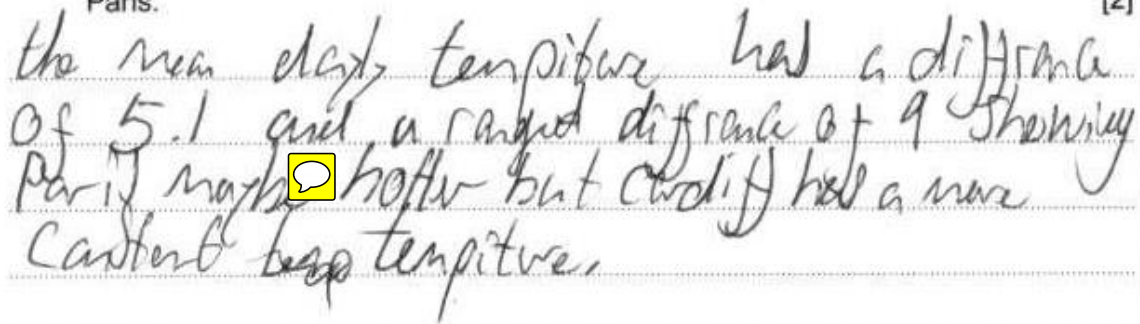 Paris. [2]
the mean daily tempiture has a diffrance
of 5.1 and a ranged diffrance of 9 showing
Paris maybe hotter but Cardiff has a more
Constent temp tempiture.